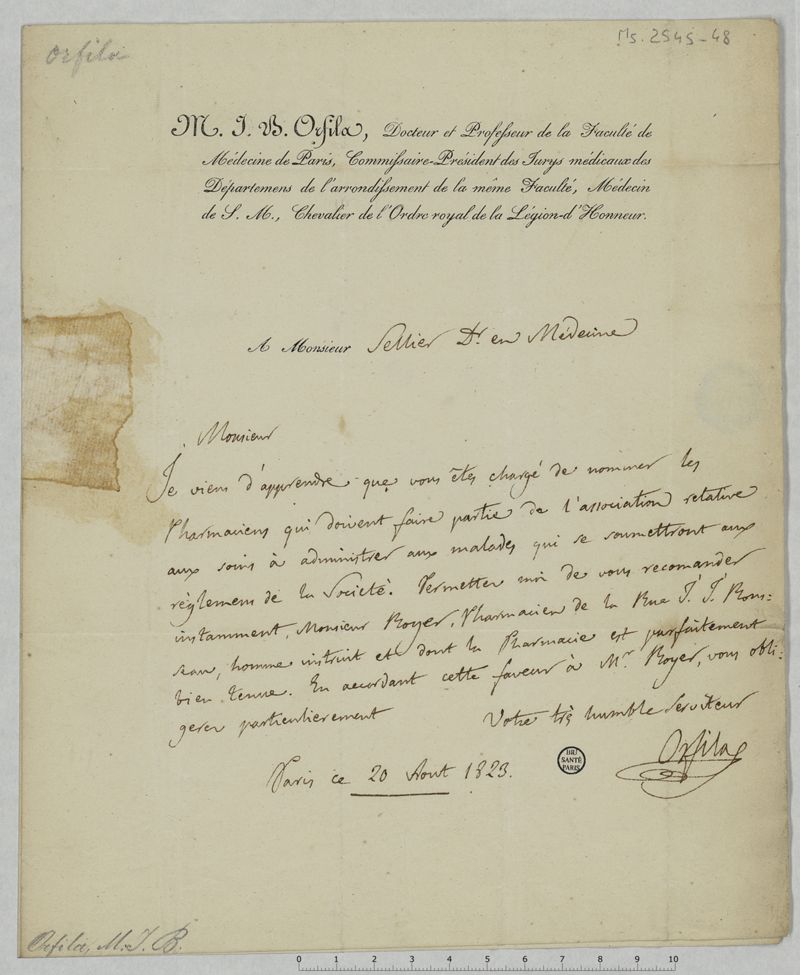 Orfila
Ms. 2545-48
M. J. B. Orfila, Docteur et Professeur de la Faculté de
Médecine de Paris, Commissaire-Président des Jurys médicaux des
Départemens de l'arrondissement de la même Faculté, Médecin
de S. M., Chevalier de l'Ordre royal de la Légion-d'Honneur.
A Monsieur Sellier Dr. en Médecine
Monsieur
Je viens d'apprendre que vous êtes chargé de nommer les
Pharmaciens qui doivent faire partie de l'association relative
aux soins à administrer aux malades qui se soumettront aux
règlemens de la Société. Permettez moi de vous recomander
instamment, Monsieur Royer, Pharmacien de la Rue J. J. Rous=
seau, homme instruit et dont la Pharmacie est parfaitement
bien tenue. En accordant cette faveur à Mr. Royer, vous obli=
gerez particulierement
Votre très humble Serviteur
Orfila
Paris ce 20 Aout 1823.
BIU
SANTÉ
PARIS
Orfila, M. J. B.
0 1 2 3 4 5 6 7 8 9 10